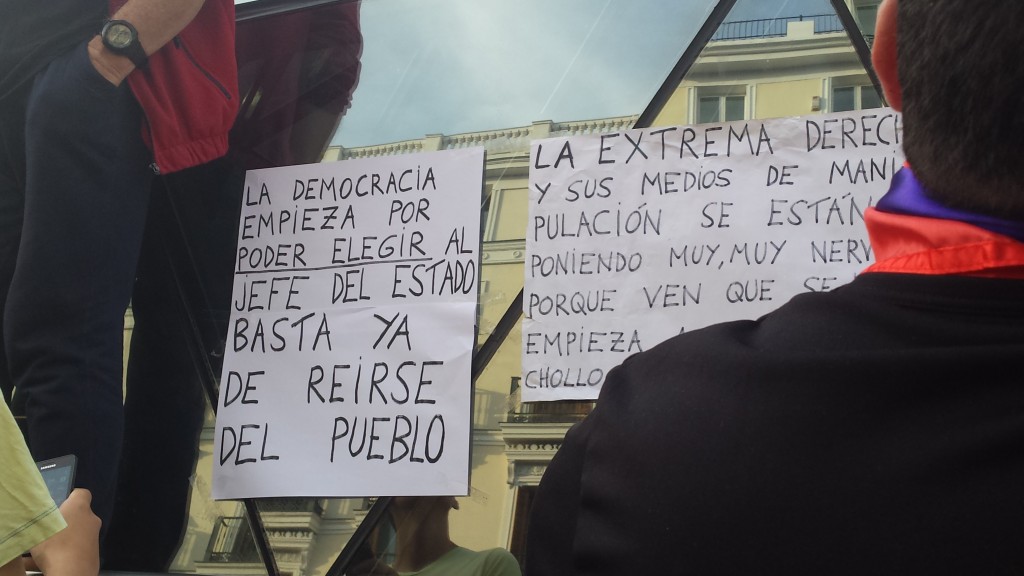 LA DEMOCRACIA
EMPIEZA POR
PODER ELEGIR AL
JEFE DEL ESTADO
BASTA YA
DE REIRSE
DEL PUEBLO
LA EXTREMA
Y SUS MEDIOS DE MANI
PULACIÓN SE ESTÁN
PONIENDO MUY, MUY
PORQUE VEN QUE SE
EMPIEZA
CHOLLO